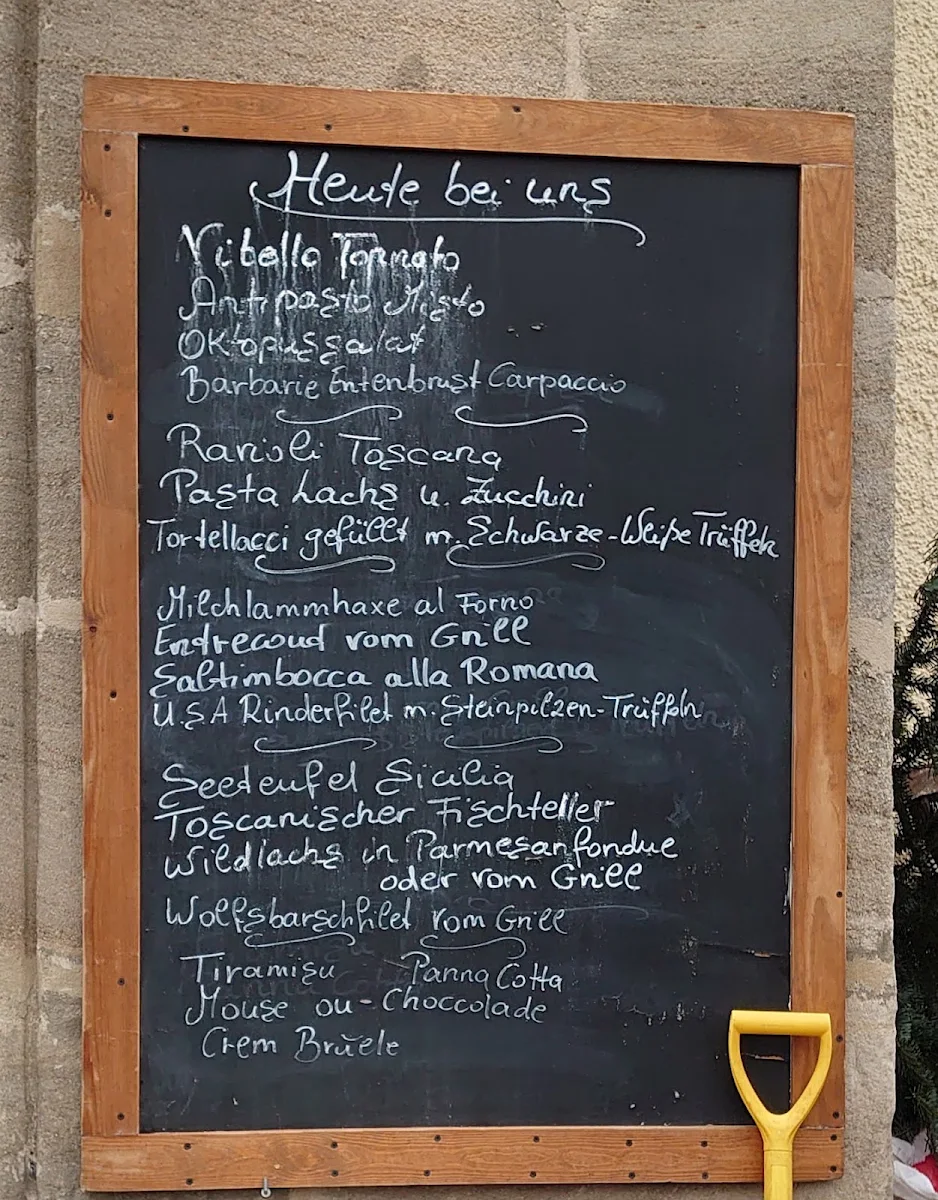 Heute bei uns
Vitello Tonnato
Antipasto Misto
Oktopussalat
Barbarie Entenbrust Carpaccio
Ravioli Toscana
Pasta Lachs u. Zucchini
Tortellacci gefüllt m. Schwarze-Weiße Trüffeln
Milchlammhaxe al Forno
Entrecoud vom Grill
Saltimbocca alla Romana
U.S A Rinderfilet m. Steinpilzen-Trüffeln
Seeteufel Sicilia
Toscanischer Fischteller
Wildlachs in Parmesanfondue
oder vom Grill
Wolfsbarschfilet vom Grill
Tiramisu Panna Cotta
Mouse ou-Choccolade
Crem Brüele